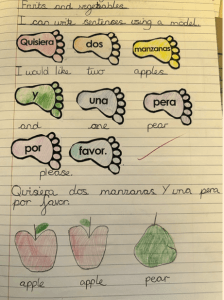 Fruits and vegetables
I can write sentences using a model.
Quisiera dos manzanas
I would like two apples
y una pera
and one pear
por favor.
please.
Quisiera dos manzanas Y una pera
por favon
apple apple pear